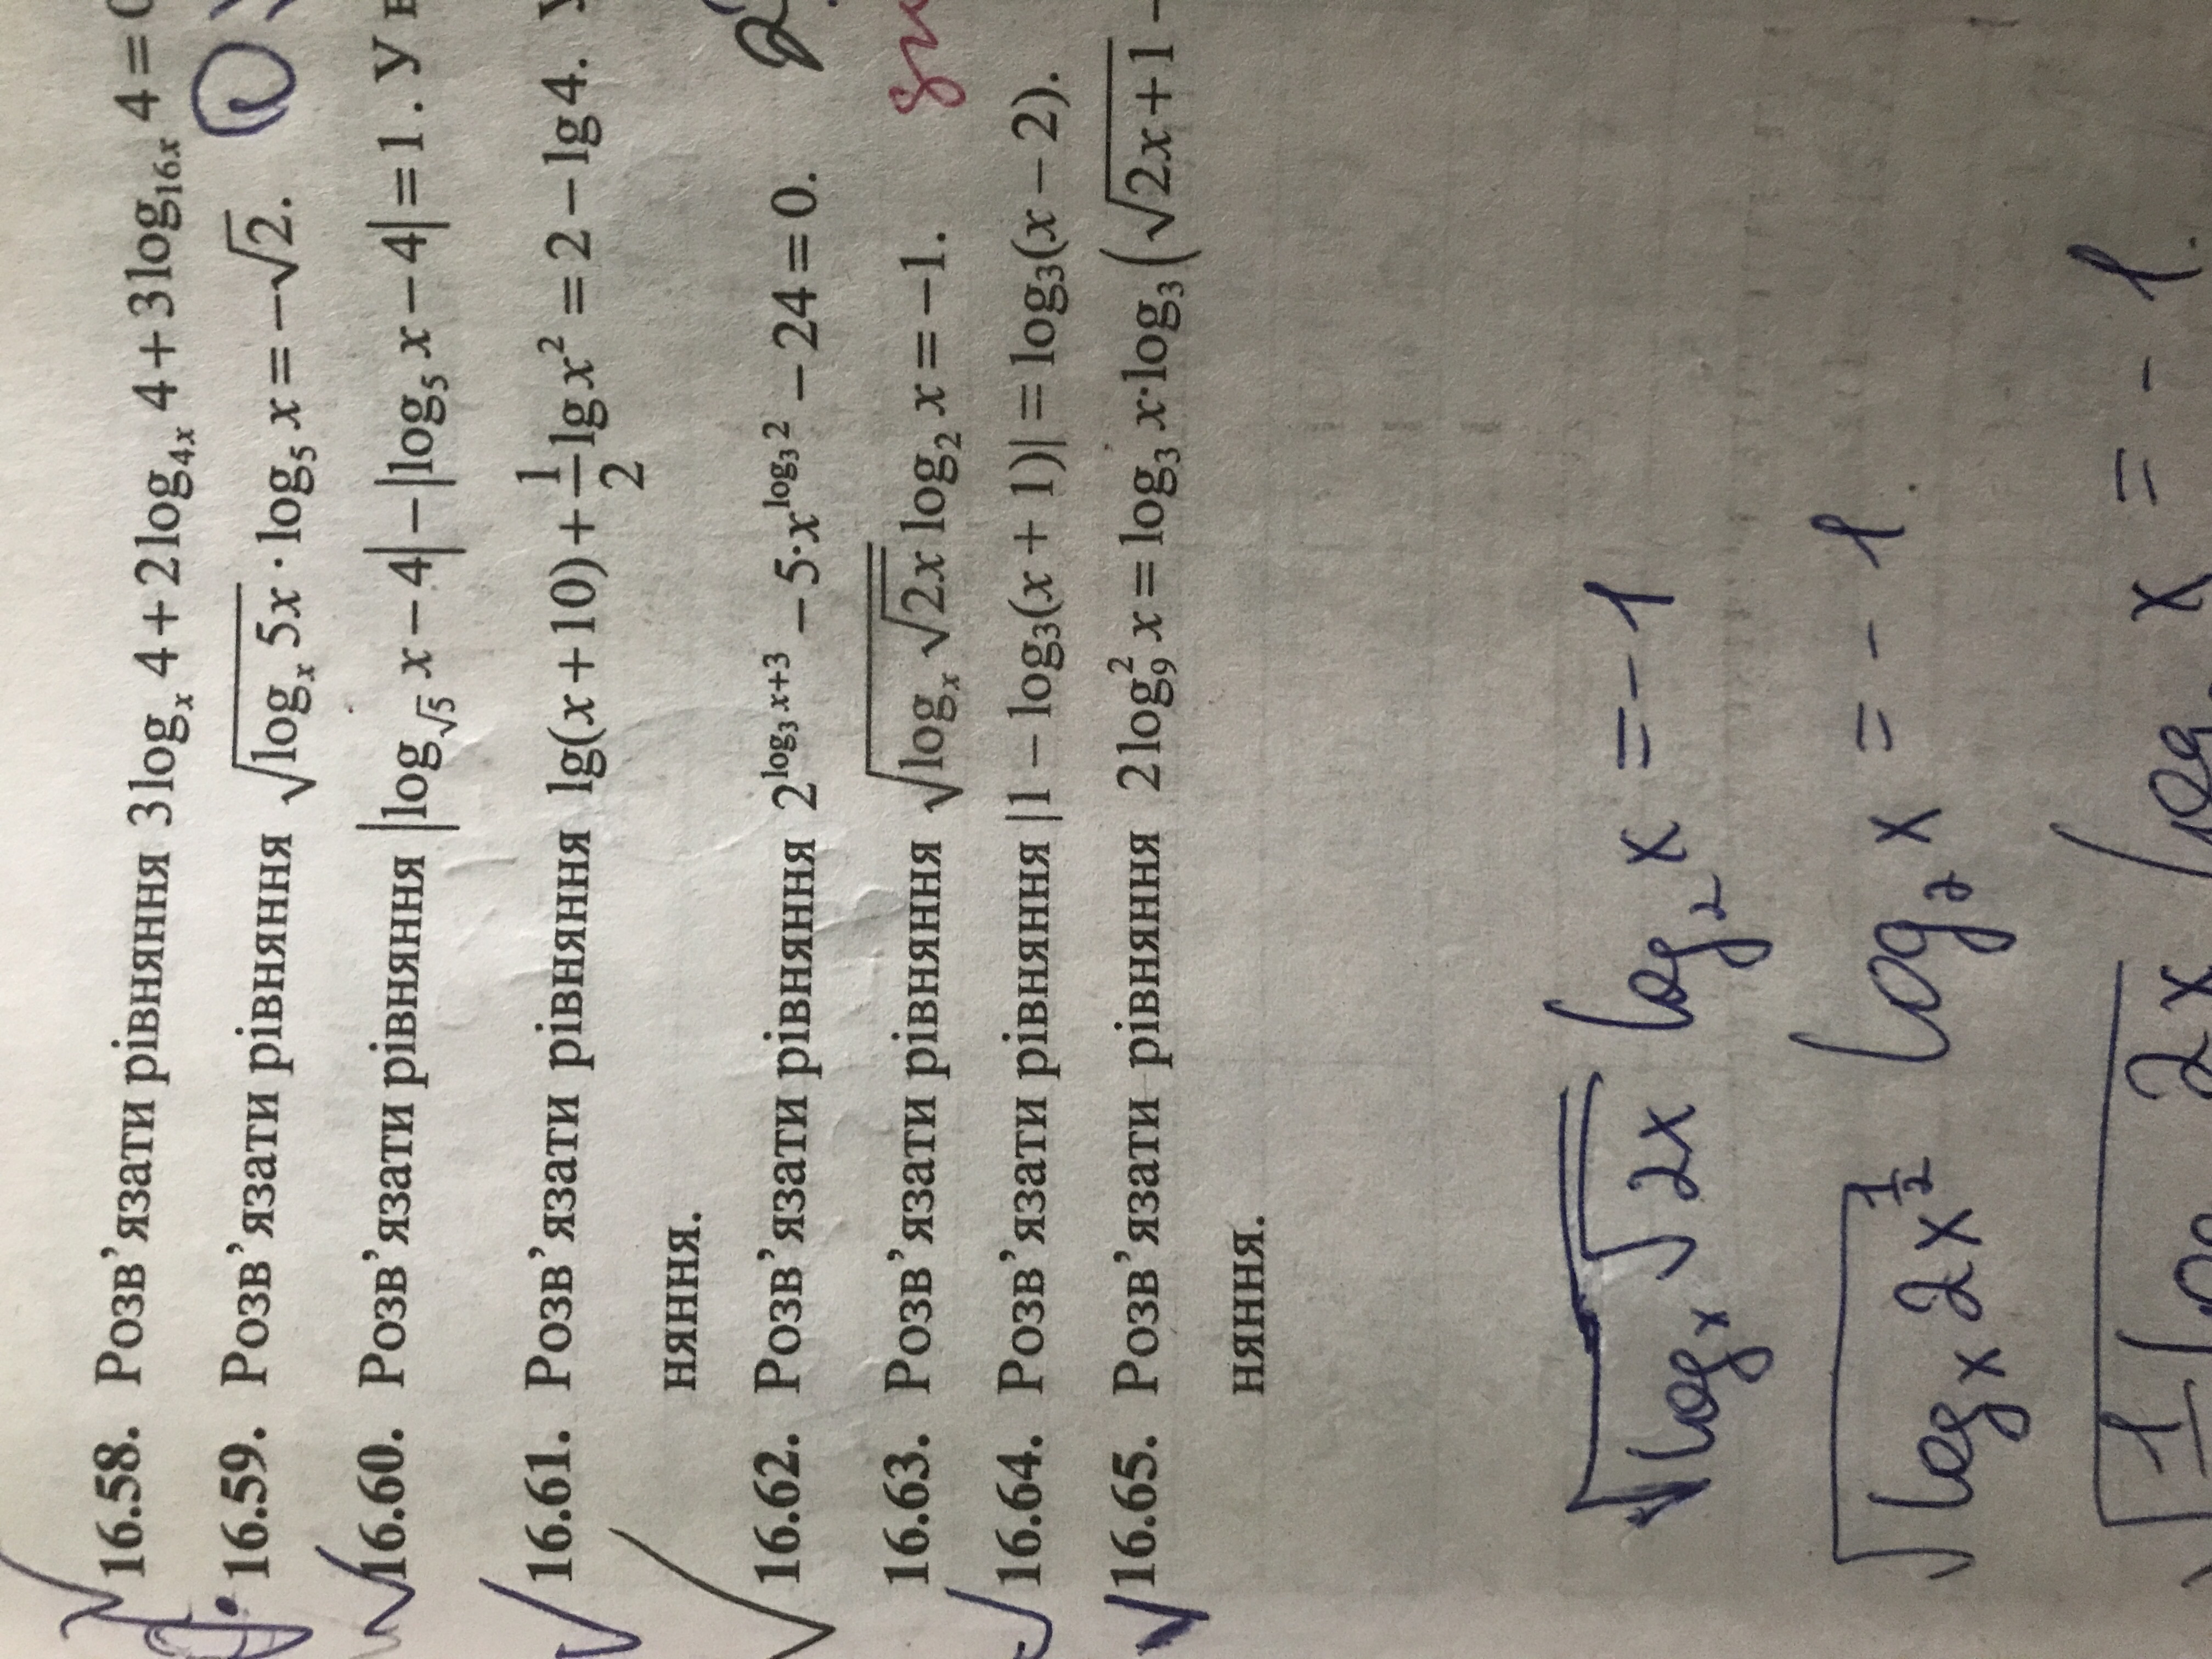 16.58. Розв’язати рівняння 3log_x 4+2log_{4x} 4+3log_{16x} 4=
16.59. Розв’язати рівняння √(log_x 5x) · log_5 x=−√2.
16.60. Розв’язати рівняння |log_{√5} x−4|−|log_5 x−4|=1. У
16.61. Розв’язати рівняння lg(x+10)+1/2 lg x²=2−lg4.
няння.
16.62. Розв’язати рівняння 2^{log_3 x+3}−5·x^{log_3 2}−24=0.
16.63. Розв’язати рівняння √(log_x √(2x)) log_2 x=−1.
16.64. Розв’язати рівняння |1−log_3(x+1)|=log_3(x−2).
16.65. Розв’язати рівняння 2log_9² x=log_3 x·log_3(√(2x+1)−
няння.
√(log_x √(2x)) log_2 x=-1
√(log_x 2x^{1/2}) log_2 x=-1.
x=-1.